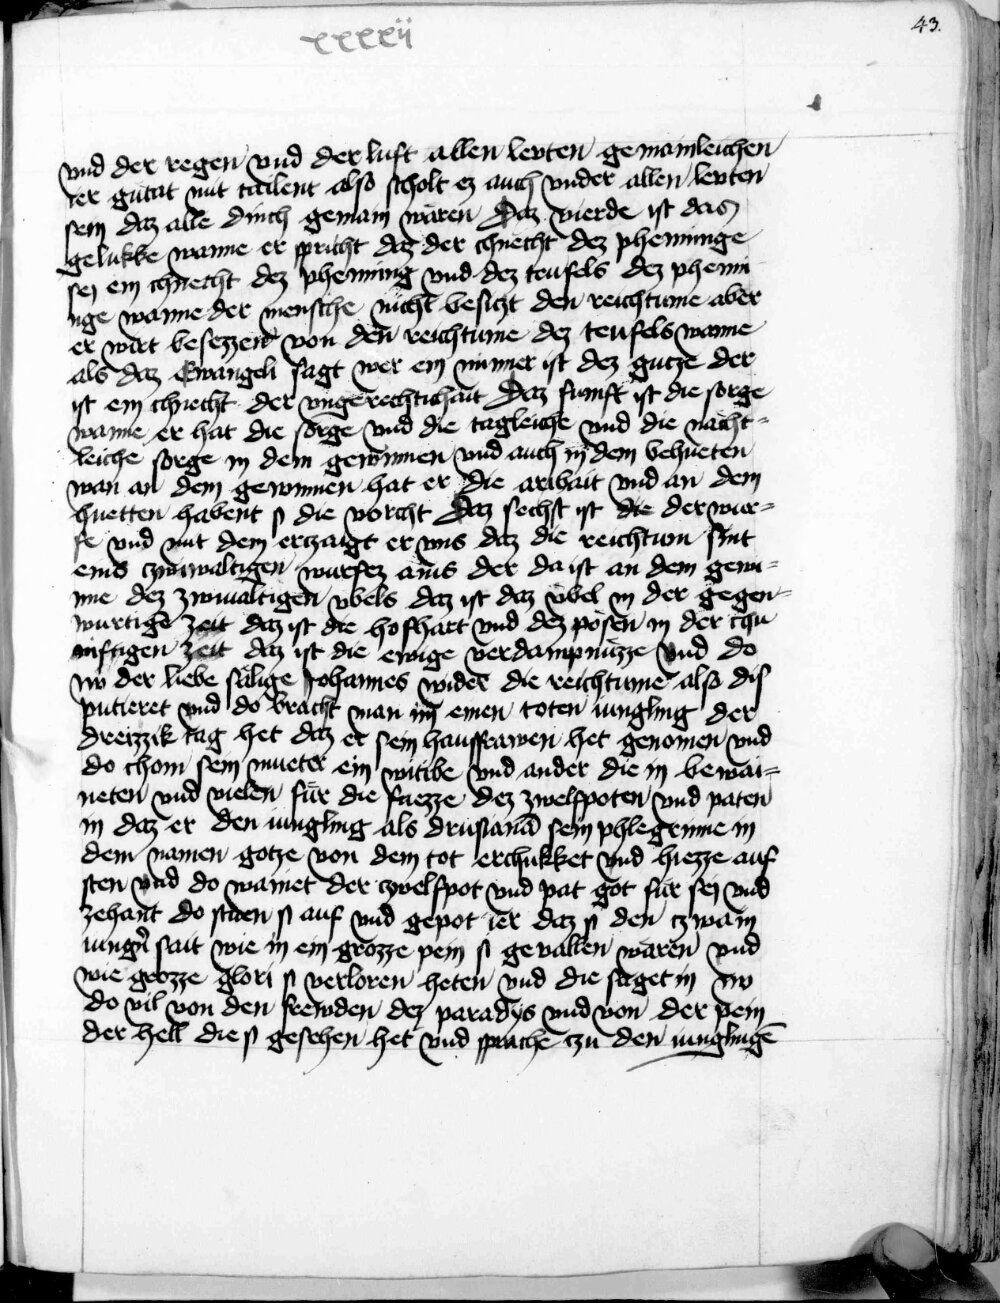 xxxxij
43.
vnd der regen vnd der luft allen levten gemainleichen
ier gutat mit tailent also scholt ez auch vnder allen levten
sein daz alle dinch gemain wären Daz vierde ist das
gelukke wanne er spricht daz der chnecht dez phenninge
sej ein chnecht dez phenning vnd dez teufels dez phenni
nge wanne der mensche nicht besiczt den reichtume aber
er wirt besezzen von den reichtume dez teufels wanne
als daz Ewangeli sagt wer ein minner ist dez gutze der
ist ein chnecht der vngerechtichait Daz funfft ist die sorge
wanne er hat die sorge vnd die tagleiche vnd die nächt-
leiche sorge in dem gewinnen vnd auch in dem behueten
wan an dem gewinnen hat er die aribait vnd an dem
huetten habent si die vorcht Daz sechst ist die der wur-
fe vnd mit dem erczaigt er vns daz die reichtum sint
eins czwiwaltigen wurfez ains der da ist an dem gewi-
nne dez zwiualtigen vbels daz ist daz vbel in der gegen-
wurtigē zeit daz ist die hofhart vnd dez posen in der chu
nftigen zeit daz ist die ewige verdampnüzze vnd do
nv der liebe sälige Johannes wider die reichtume also dis
putieret vnd do bracht man im einen toten iungling der
dreizzik tag het daz er sein hausfrawen het genomen vnd
do chom sein mueter ein witibe vnd ander die in bewai-
neten vnd vielen für die fuezze dez zwelfpoten vnd paten
in daz er den iungling als drusianā sein phlegrinne in
dem namen gotze von dem tot erchukket vnd hiezze auf
sten vnd do wainet der czwelfpot vnd pat got für sej vnd
zehant do stuen si auf vnd gepot ier daz si den czwain
iungn̄ sait wie in ein grozze pein si gevallen wären vnd
wie grozze glori si verloren heten vnd die saget in nv
do vil von den frewden dez paradys vnd von der pein
der hell die si gesehen het vnd sprache czu den iunglingē